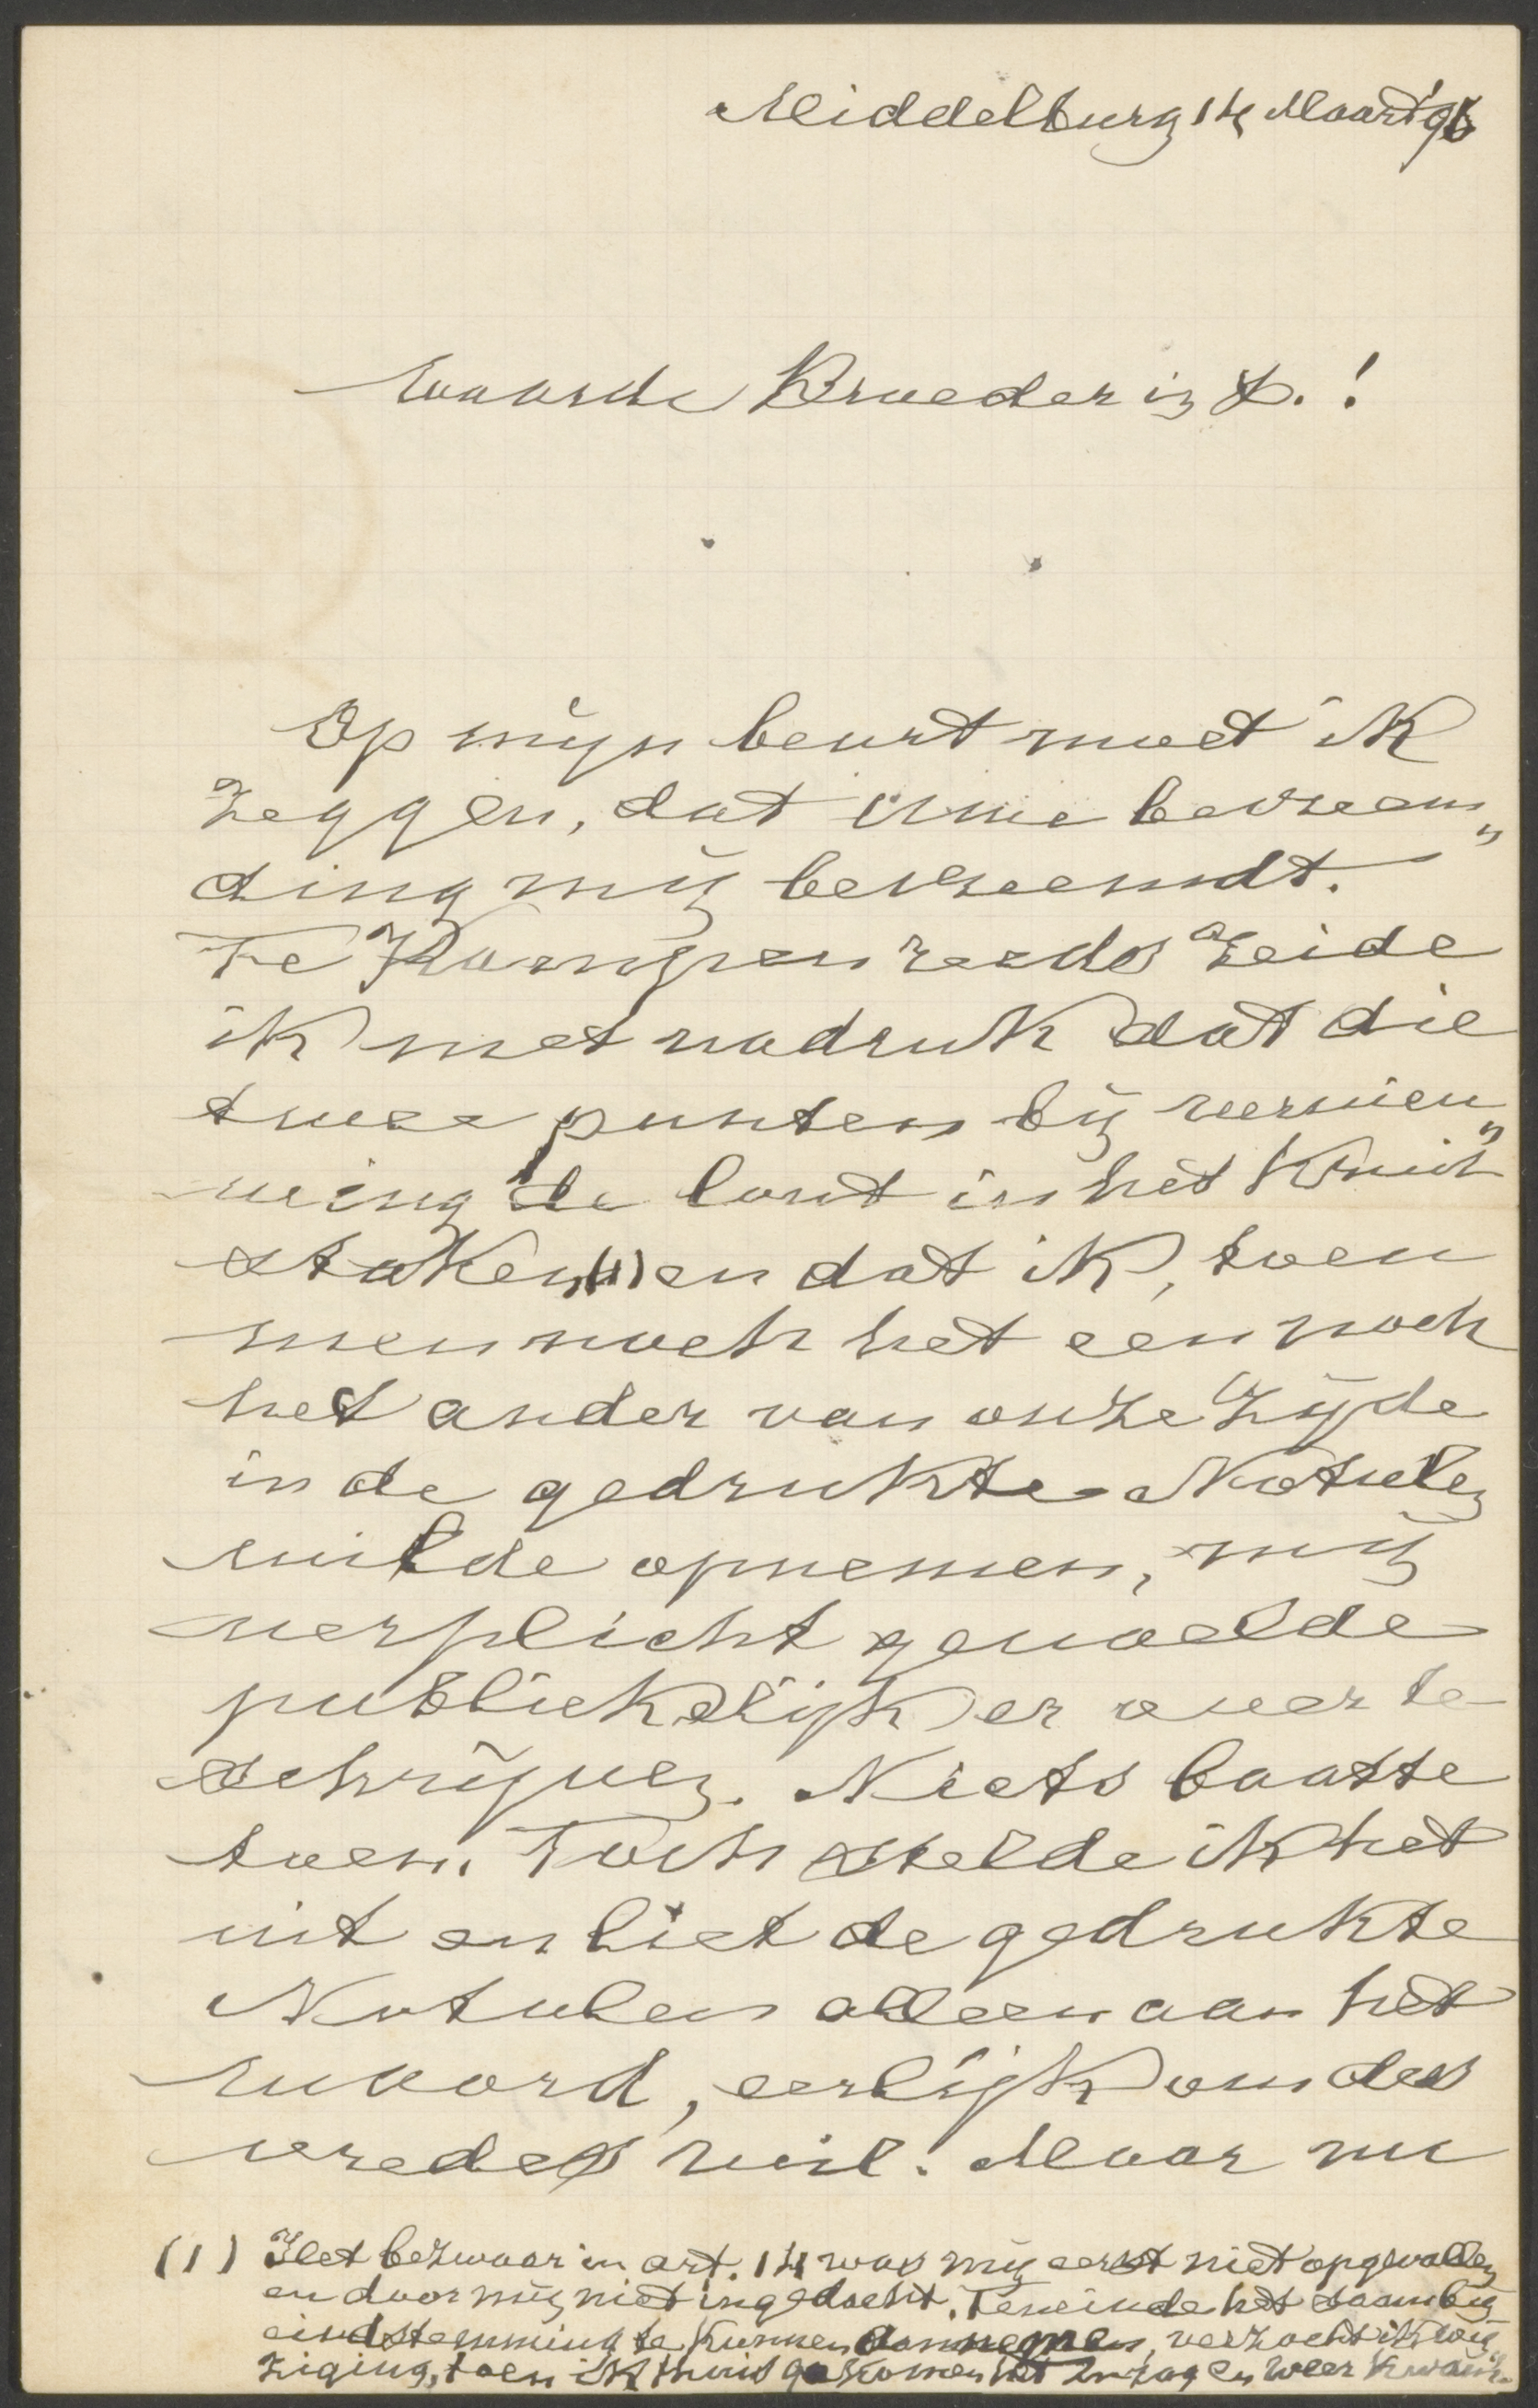 Middelburg 14 Maart '96
Waarde Broeder in X.!
Op mijn beurt moet ik
zeggen, dat Uwe bevreem„
ding mij bevreemdt.
Te Kampen reeds zeide
ik met nadruk dat die
twee punten bij vernieu„
wing de lont in het kruit
staken (1) en dat ik, toen
men noch het een noch
het ander van onze zijde
in de gedrukte Notulen
wilde opnemen, mij
verplicht gevoelde
publiekelijk er over te
schrijven. Niets baatte
toen. Toch stelde ik het
uit en liet de gedrukte
Notulen alleen aan het
woord, eerlijk om des
vredes wil. Maar nu
(1) Het bezwaar in art. 14 was mij eerst niet opgevallen
en door mij niet ingedacht. Teneinde het saam bij
eindstemming te kunnen aannemen, verzocht ik wij„
ziging, toen ik thuis gekomen het inzag en weer kwam.